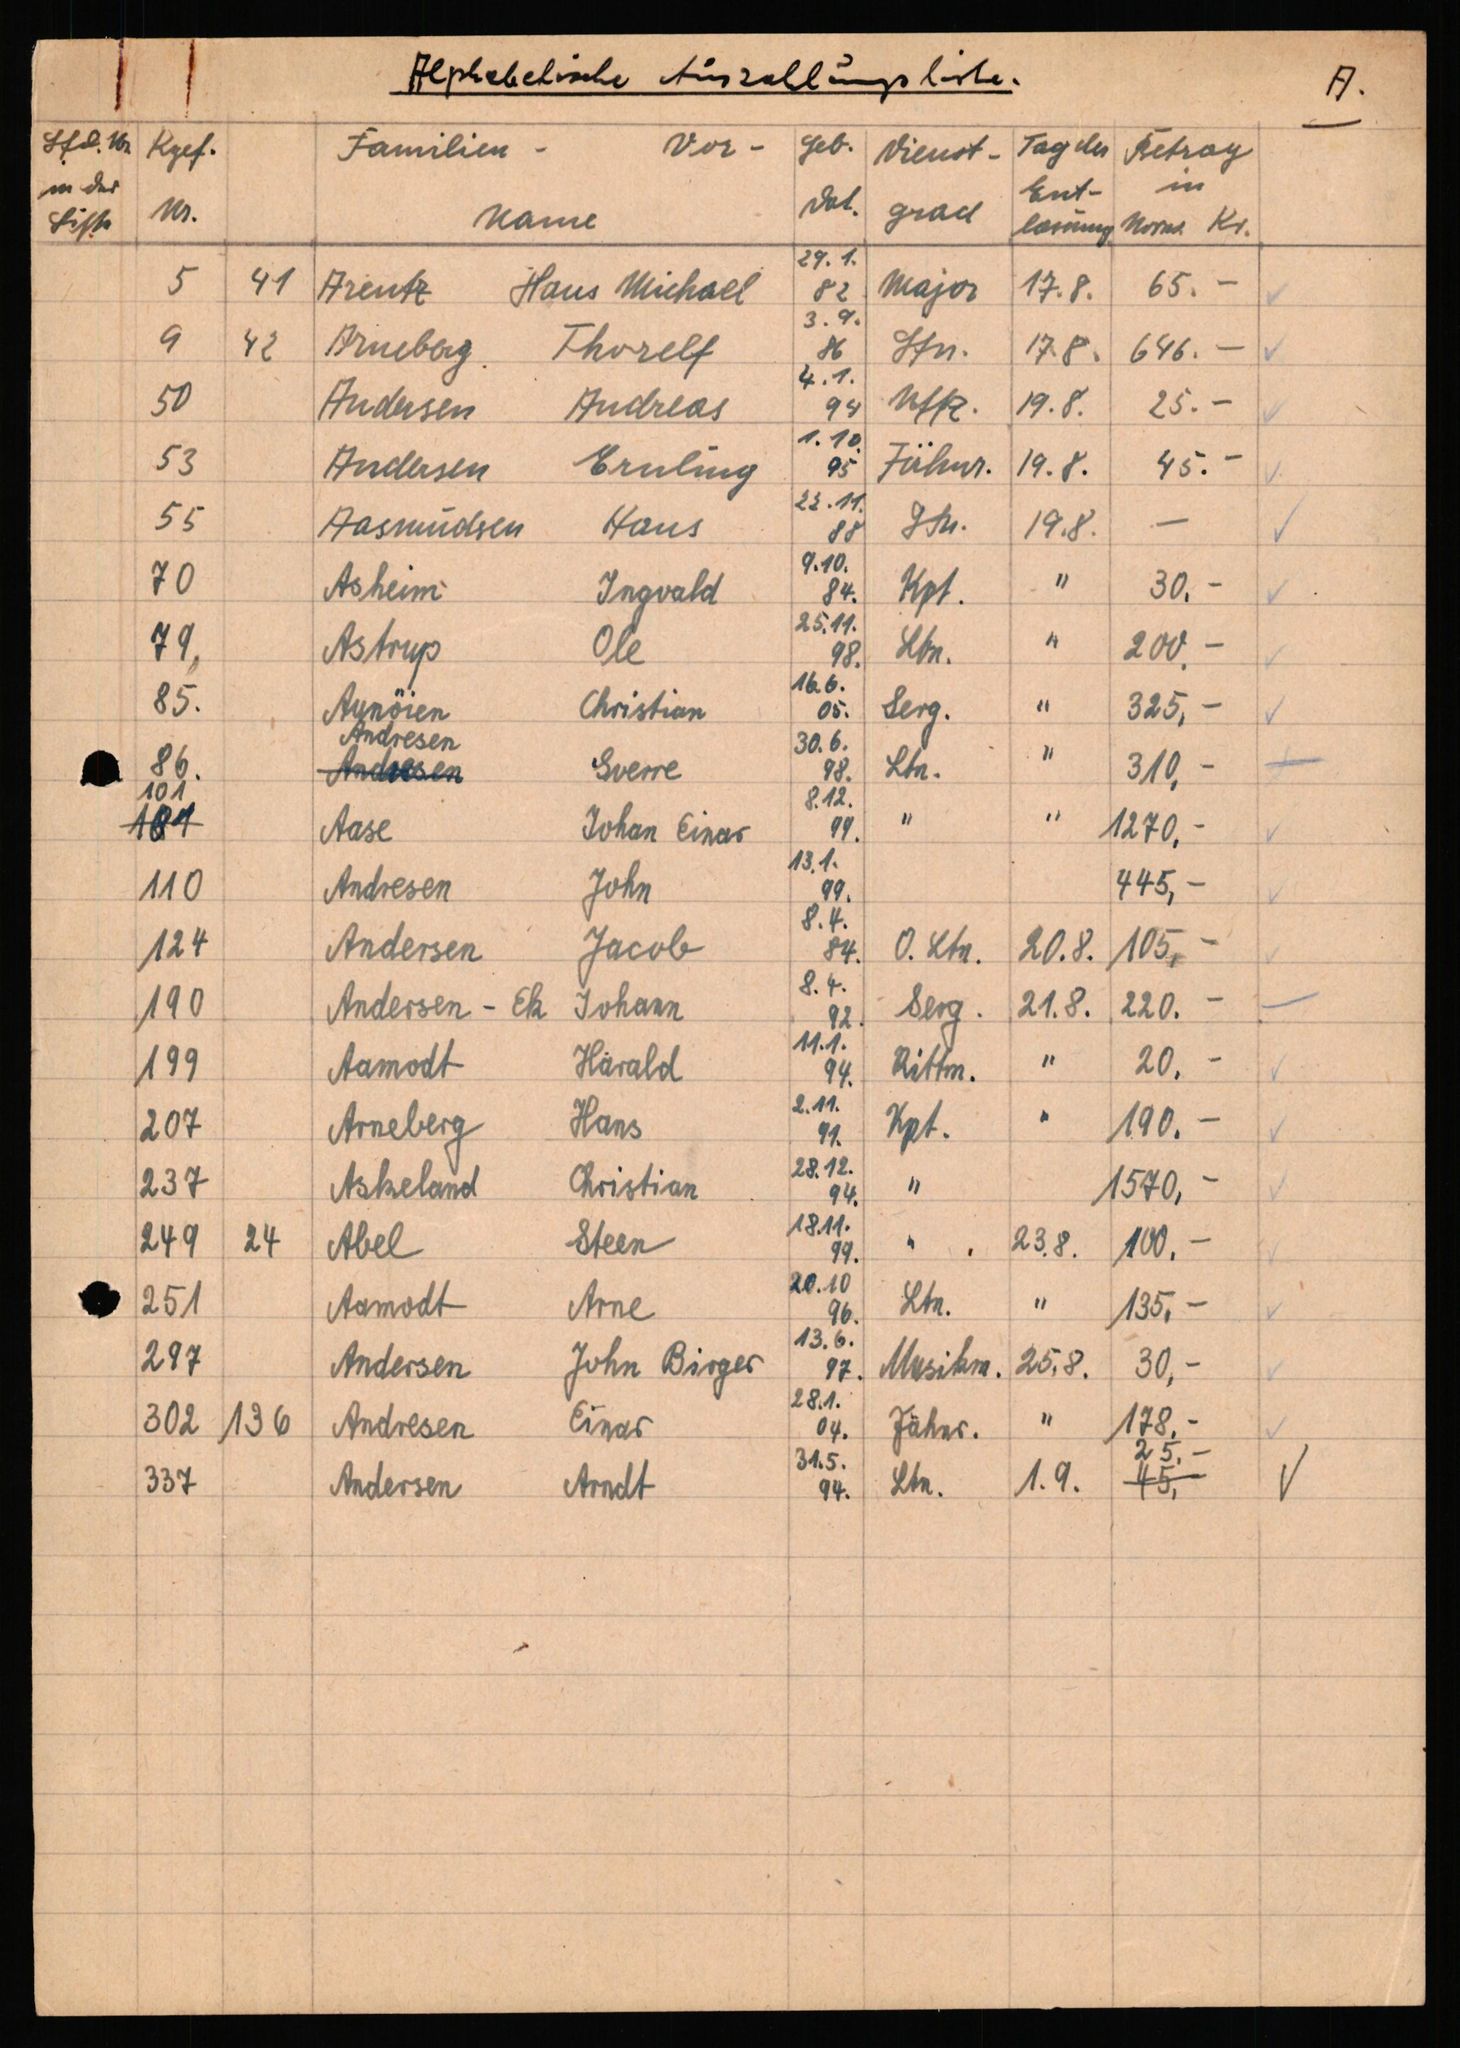 Alphabetische Auszahlungsliste. A.
Lfd. Nr. Kgef. Familien - Vor - Geb. Dienst- Tag der Betrag
in der Ent- in
Liste Nr. Name Dat. grad lassung Norw. Kr.
5 41 Arentz Hans Michael 29.1.82 Major 17.8. 65.-
9 42 Arneberg Thorelf 3.9.86 Ltn. 17.8. 646.-
50 Andersen Andreas 4.1.94 Uffz. 19.8. 25.-
53 Andersen Eruling 1.10.95 Fähnr. 19.8. 45.-
55 Aasmudsen Hans 22.11.88 Ltn. 19.8. -
70 Asheim Ingvald 9.10.84. Kpt. " 30.-
79. Astrup Ole 25.11.98. Ltn. " 200.-
85. Aynöien Christian 16.6.05. Serg. " 325,-
Andresen
86. Andresen Sverre 30.6.98. Ltn. " 310,-
101
101 Aase Johan Einar 8.12.99. " " 1270,-
110 Andresen John 13.1.99. 445,-
124 Andersen Jacob 8.4.84. O. Ltn. 20.8. 105,-
190 Andersen - Ek Johann 8.4.92. Serg. 21.8. 220.-
199 Aamodt Harald 11.1.94. Rittm. " 20,-
207 Arneberg Hans 2.11.91. Kpt. " 190.-
237 Askeland Christian 28.12.94. " 1570,-
249 24 Abel Steen 18.11.99. " . 23.8. 100,-
251 Aamodt Arne 20.10 96. Ltn. " 135,-
297 Andersen John Birger 13.6.97. Musikm. 25.8. 30,-
302 136 Andresen Einar 28.1.04. Fähnr. " 178,-
25,-
337 Andersen Arndt 31.5.94. Ltn. 1.9. 45,-